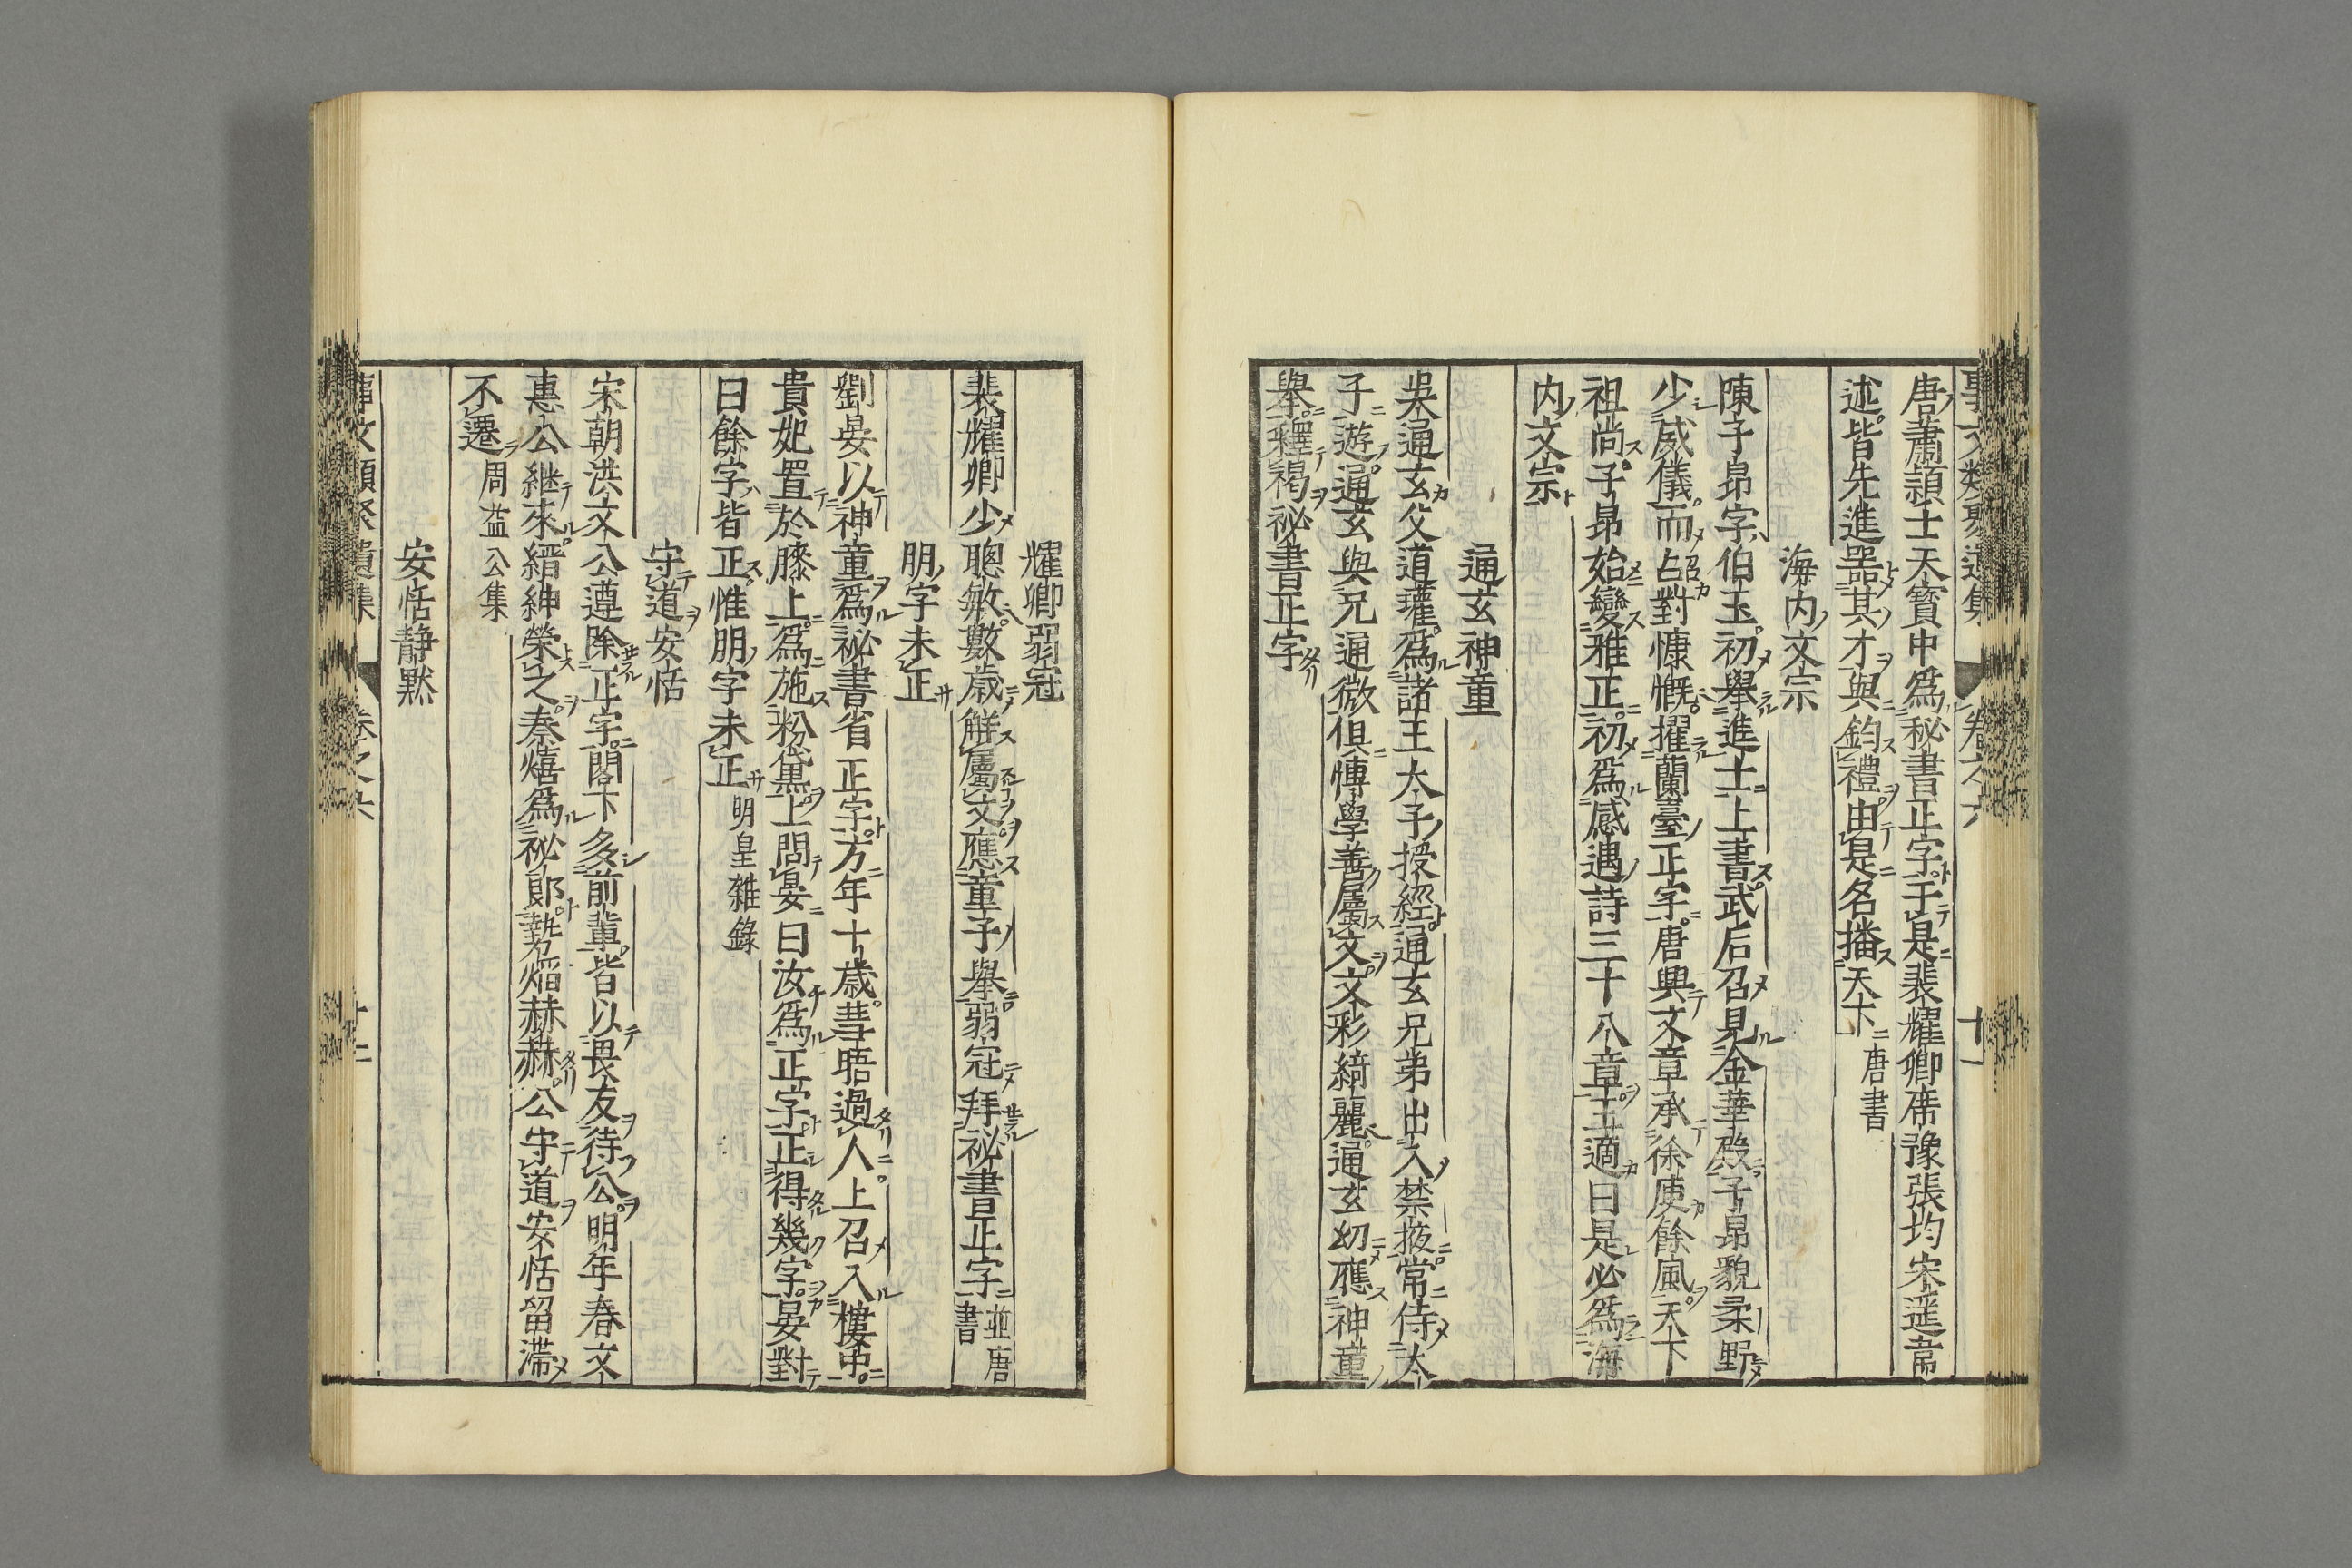 唐蕭頴士天寳中爲秘書正字于是裴耀卿席豫張均宋遥韋
述皆先進器其才與鈞禮由是名播天下唐書
海内文宗
陳子昻字伯玉初舉進士上書武后召見金華殿子昻貌柔野
少威儀而占對慷慨擢蘭臺正字唐興文章承徐庾餘風天下
祖尚子昻始變雅正初爲感遇詩三十八章王適曰是必爲海
内文宗
通玄神童
吳通玄父道瓘爲諸王太子授經通玄兄弟出入禁掖常侍太
子遊通玄與兄通微俱博學善屬文文彩綺麗通玄幼應神童
舉釋褐祕書正字
耀卿弱冠
裴耀卿少聰敏數歳觧屬文應童子舉弱冠拜祕書正字並唐書
朋字未正
劉晏以神童爲祕書省正字方年十歳彗晤過人上召入樓中
貴妃置於膝上爲施粉黛上問晏曰汝爲正字正得幾字晏對
曰餘字皆正惟朋字未正明皇雜錄
守道安恬
宋朝洪文公遵除正字閣下多前輩皆以畏友待公明年春文
惠公継來縉紳榮之秦熺爲祕郎勢焰赫赫公守道安恬留滞
不遷周益公集
安恬靜黙
事文類聚遺集　卷之六　十二